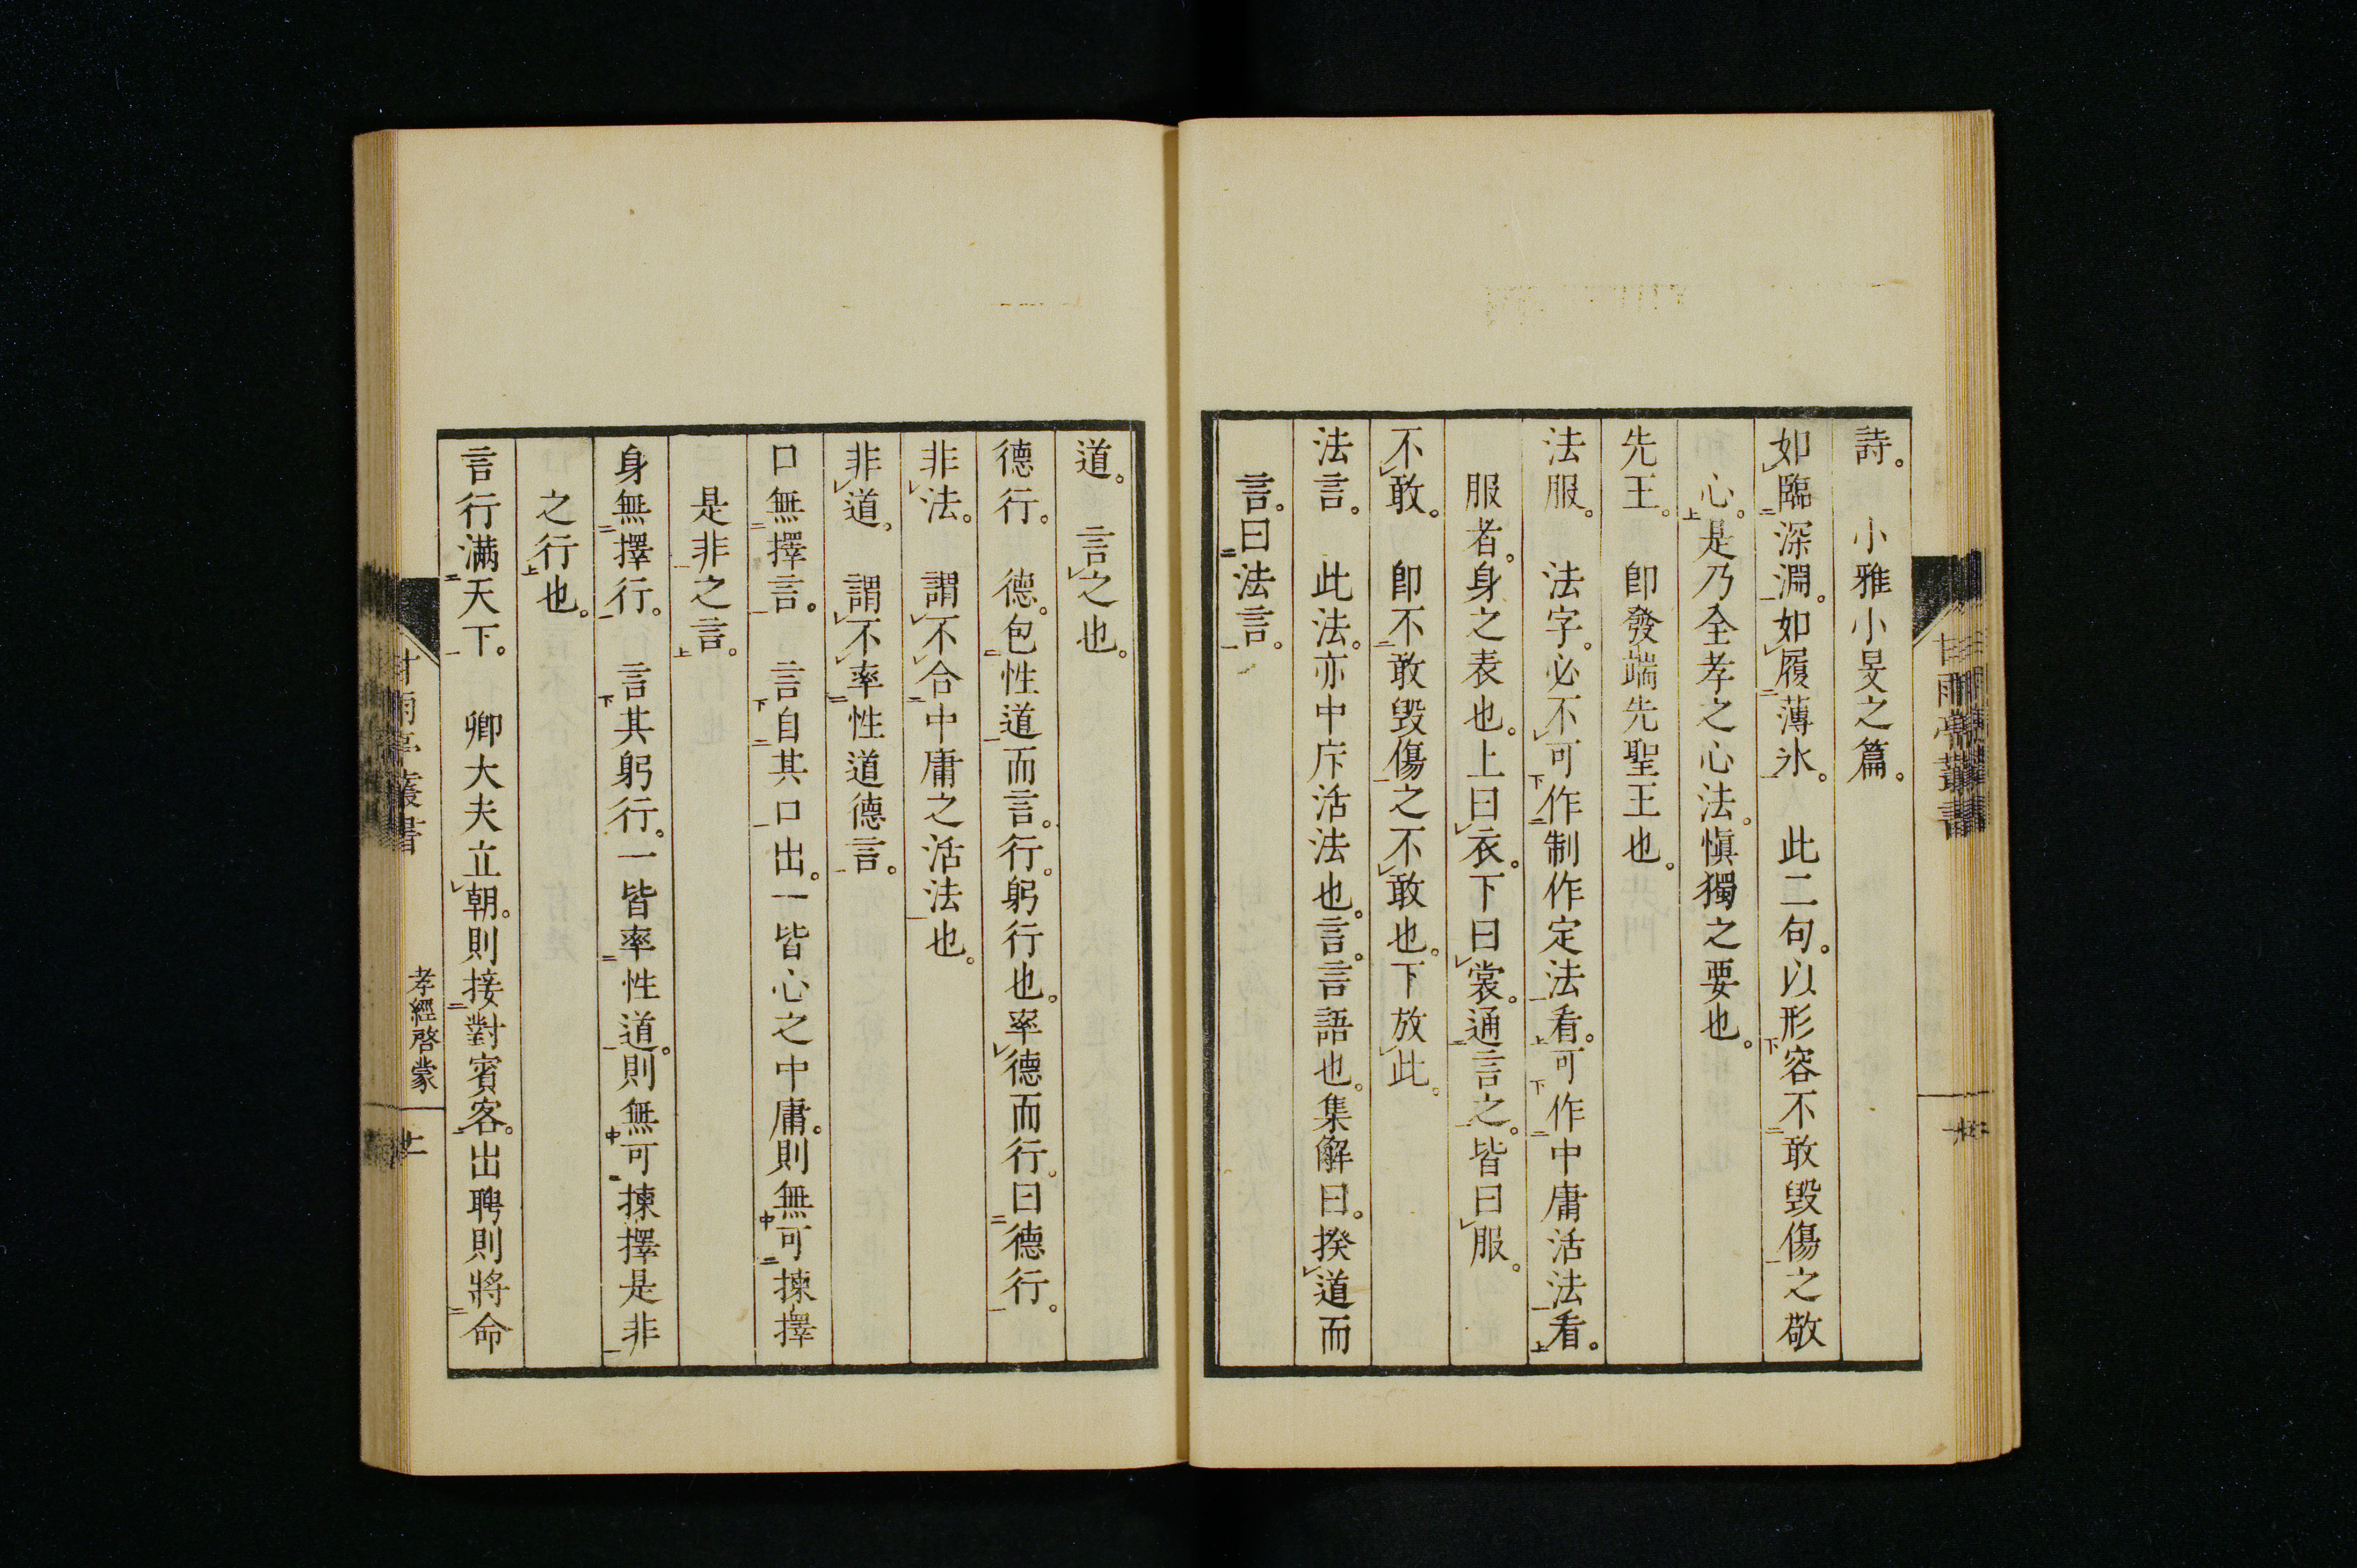 詩。　小雅小旻之篇。
如臨深淵。如履薄氷。　此二句。以形容不敢毀傷之敬
心。是乃全孝之心法。愼獨之要也。
先王。　卽發端先聖王也。
法服。　法字。必不可作制作定法看。可作中庸活法看。
服者。身之表也。上曰衣。下曰裳。通言之。皆曰服。
不敢。　卽不敢毀傷之不敢也。下放此。
法言。　此法。亦中庸活法也。言。言語也。集解曰。揆道而
言。曰法言。
道。　言之也。
德行。　德。包性道而言。行。躬行也。率德而行。曰德行。
非法。　謂不合中庸之活法也。
非道。　謂不率性道德言。
口無擇言。　言自其口出。一皆心之中庸。則無可揀擇
是非之言。
身無擇行。　言其躬行。一皆率性道。則無可揀擇是非
之行也。
言行滿天下。　卿大夫立朝。則接對賓客。出聘則將命
甘雨亭叢書
孝經啓蒙